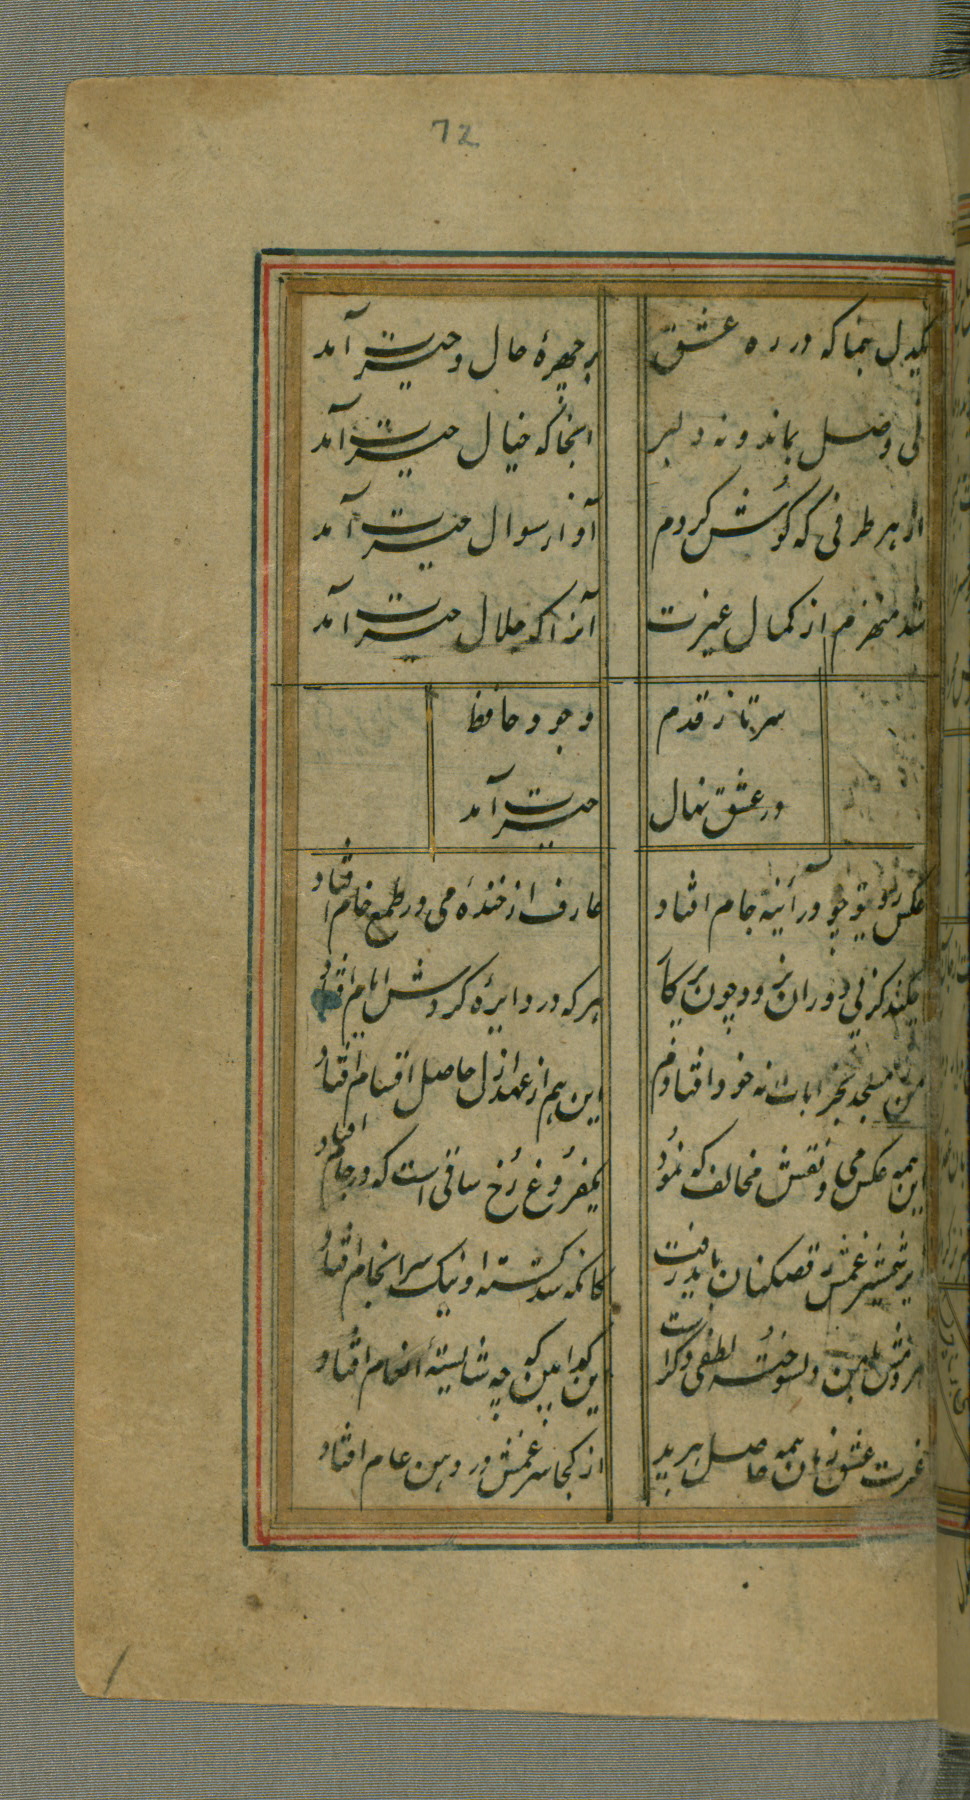 72
یکدل بنما که در ره عشق
بر چهرهٔ حال و حیرت آمد
نی وصل بماند و نه دلبر
انجا که خیال حیرت آمد
از هر طرفی که گوش کردم
آواز سوال حیرت آمد
شد منهزم از کمال عزت
آنرا که جلال حیرت آمد
سر تا ز قدم
وجود حافظ
در عشق نهال
حیرت آمد
عکس روی تو چو در آئینه جام افتاد
عارف از خندهٔ می در طمع خام افتاد
چکند کز پی دوران نرود چون پرکار
هر که در دایرهٔ گردش ایام افتاد
من ز مسجد بخرابات نه خود افتادم
این هم از عهد ازل حاصل اقسام افتاد
این همه عکس می و نقش مخالف که نمود
یکفروغ رخ ساقی است که در جام افتاد
زیر شمشیر غمش رقصکنان باید رفت
کانکه شد کشته او نیک سرانجام افتاد
هر دمش با من دلسوخته لطفی دگر است
این گدا بین که چه شایستهٔ انعام افتاد
غیرت عشق زبان همه خاصل ببرید
از کجا سر غمش در دهن عام افتاد